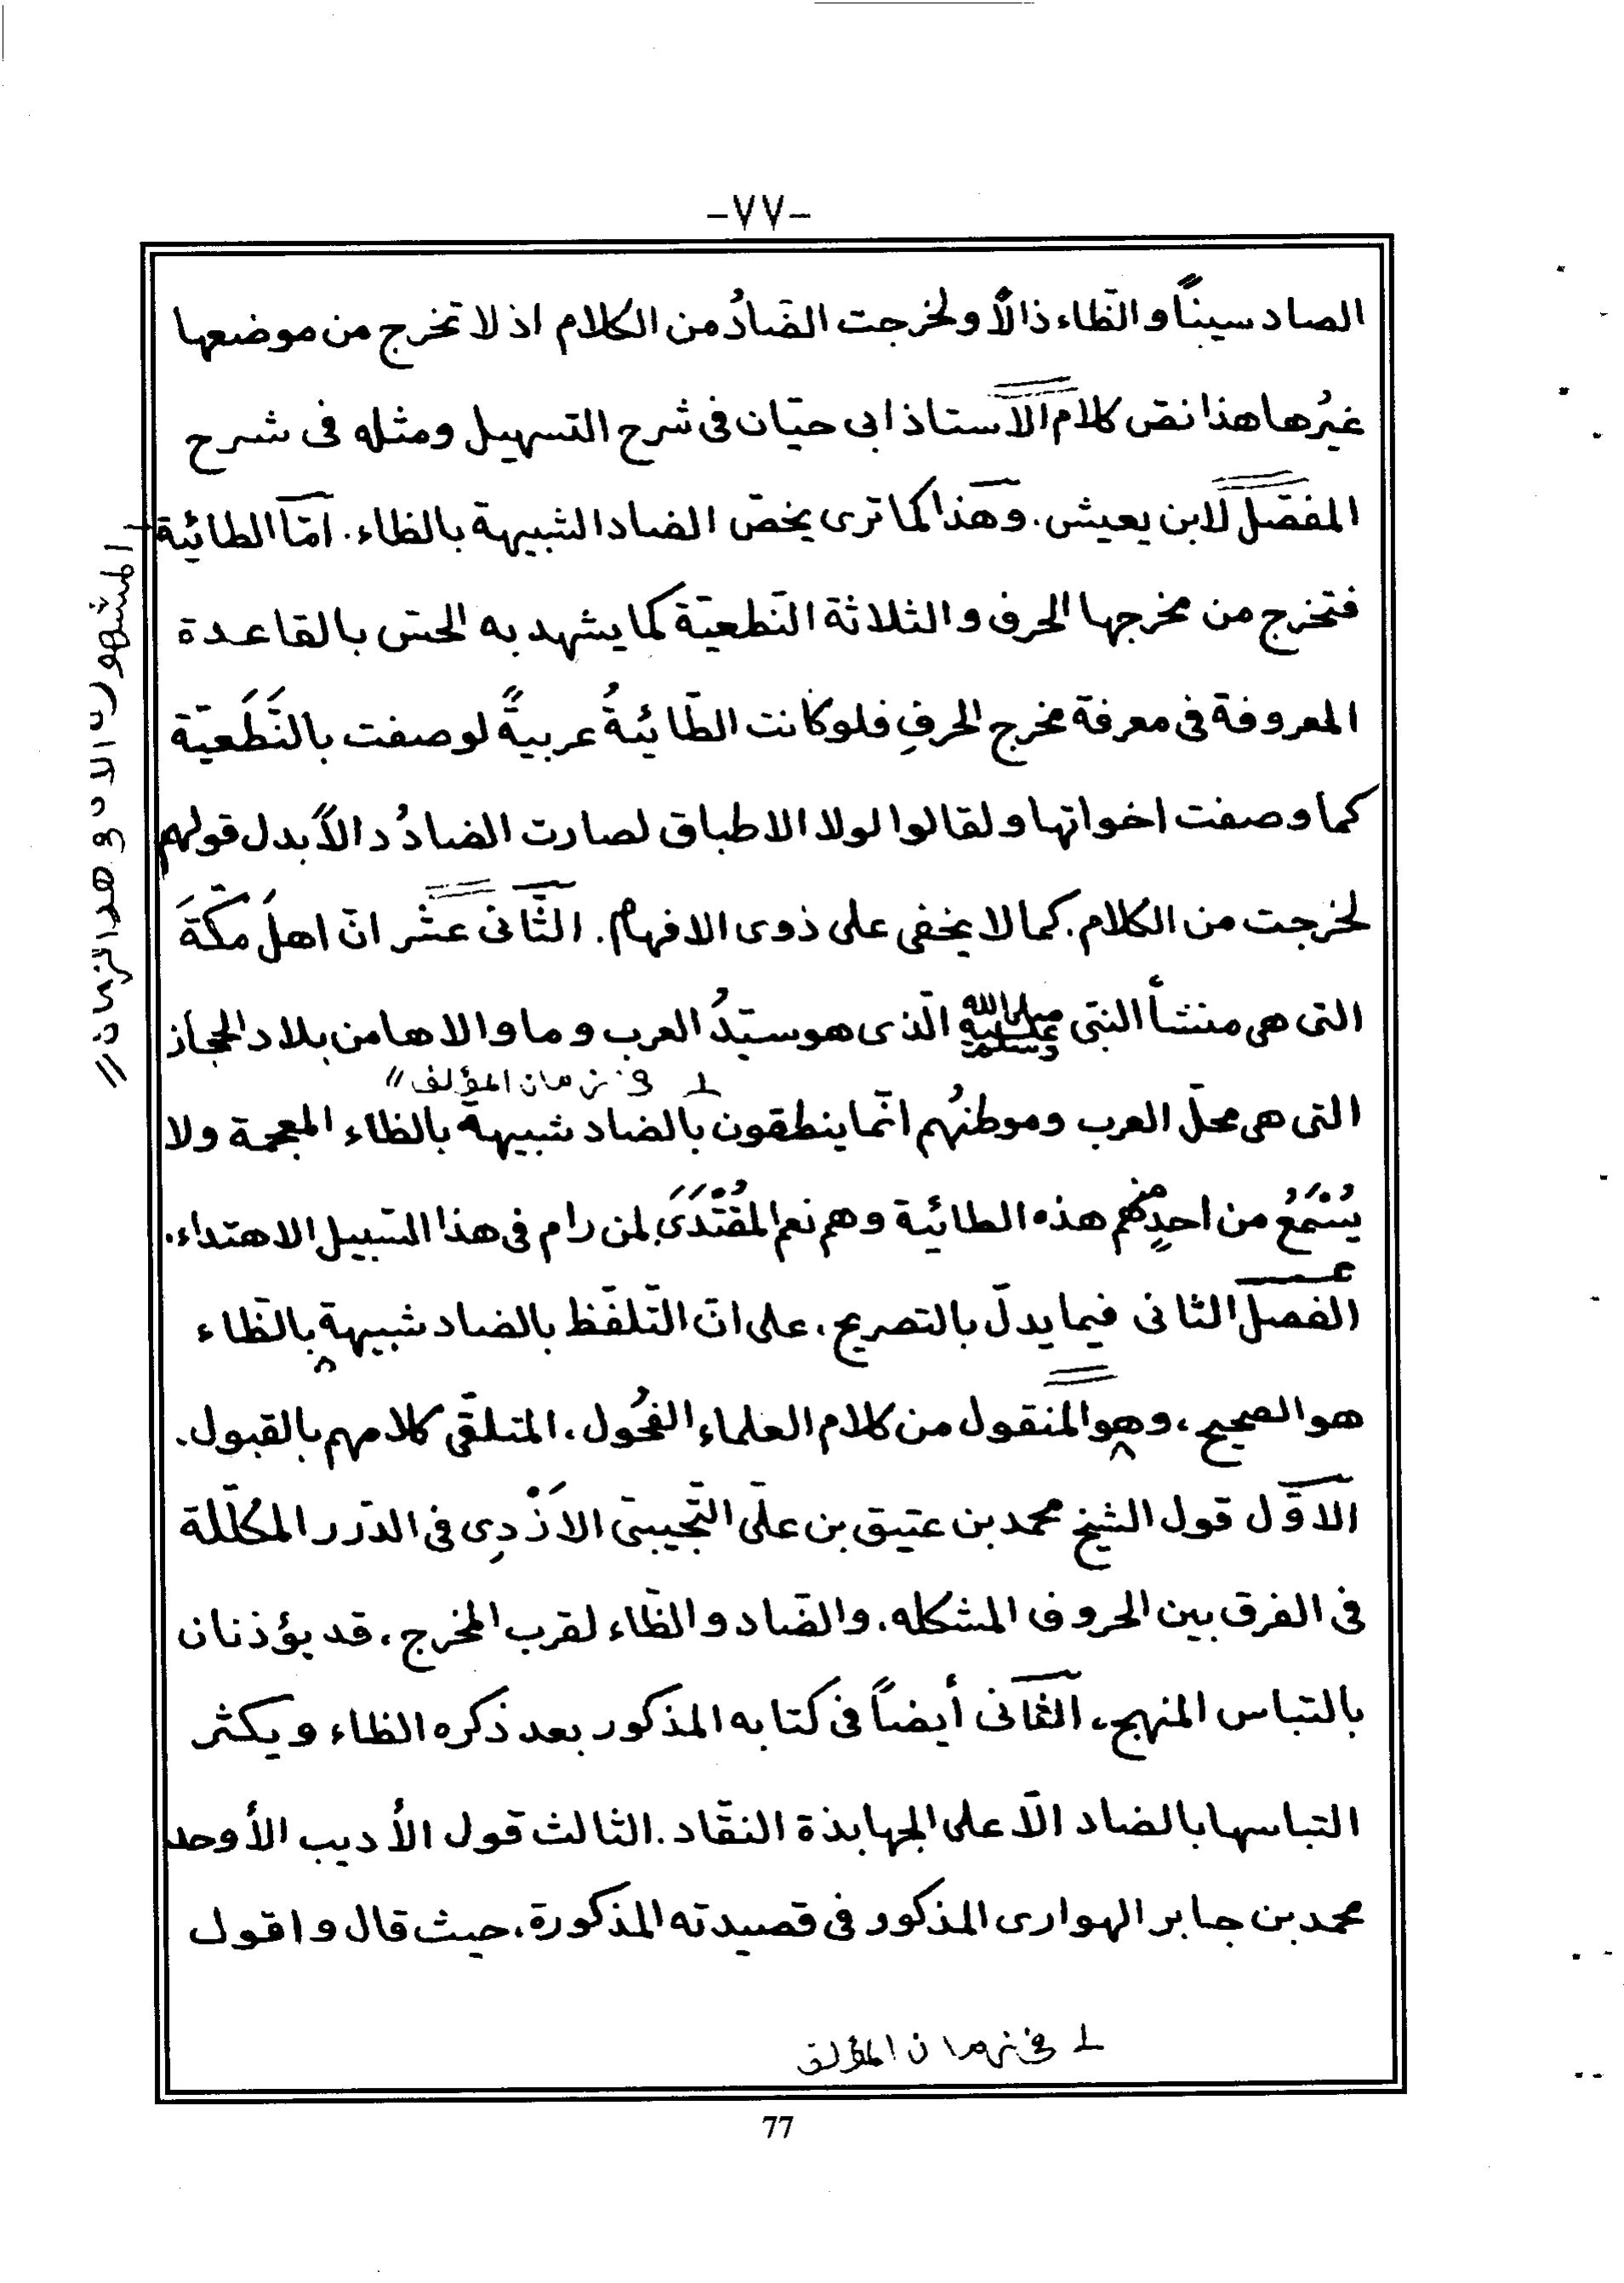 -٧٧-
الصاد سيناً والظّاء ذالاً ولخرجت الضّادُ من الكلام اذ لا تخرج من موضعها
غيرُها هذا نصّ كلام الاستاذ ابى حيّان فى شرح التسهيل ومثله فى شرح
المفصّل لابن يعيش. وهذا كما ترى يخصّ الضاد الشبيهة بالظاء. امّا الطائيّة
فتخرج من مخرجها الحرف والثلاثة النّطعيّة كما يشهد به الحسّ بالقاعدة
المعروفة فى معرفة مخرج الحرفِ فلو كانت الطّائيّةُ عربيةً لوصفت بالنَّطَعيّة
كما وصفت اخواتها ولقالوا لولا الاطباق لصارت الضادُ دالاً بدل قولهم
لخرجت من الكلام. كما لا يخفى على ذوى الافهام. الثّانى عشر انّ اهلَ مكّةَ
التى هى منشأ النبىّ صلى الله عليه وسلم الّذى هو سيّدُ العرب وما والاها من بلاد الحجاز
فى زمان المؤلف //
التى هى محلّ العرب وموطنُهم انّما ينطقون بالضاد شبيهةً بالظاء المعجمة ولا
يُسْمَعُ من احدٍ منهم هذه الطائية وهم نعم المُقْتَدَى لمن رام فى هذا السّبيل الاهتداء.
الفصل الثانى فيما يدلّ بالتصريح، على انّ التّلفّظ بالضاد شبيهة بالظّاء
هو الصحيح، وهو المنقول من كلام العلماء الفحُول، المتلقّى كلامهم بالقبول.
الاوّل قول الشيخ محمد بن عتيق بن علىّ التّجيبىّ الازْدِى فى الدّرر المكلّلة
فى الفرق بين الحروف المشكله. والضّاد والظّاء لقرب المخرج، قد يؤذنان
بالتباس المنهج، الثّانى أيضاً فى كتابه المذكور بعد ذكره الظاء ويكثر
التباسها بالضاد الّا على الجهابذة النقّاد. الثالث قول الأديب الأوحد
محمد بن جابر الهوارى المذكور فى قصيدته المذكورة، حيث قال واقول
فى زمان المؤلف
المشهورة الآن فى هذا الزمان //
77